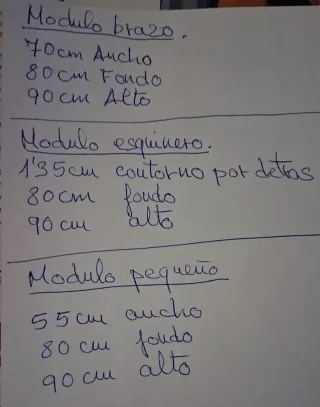 Modulo brazo.
70cm Ancho
80cm Fondo
90cm Alto
Modulo esquinero.
1'35cm contorno por detras
80cm fondo
90cm alto
Modulo pequeño
55cm ancho
80cm fondo
90cm alto